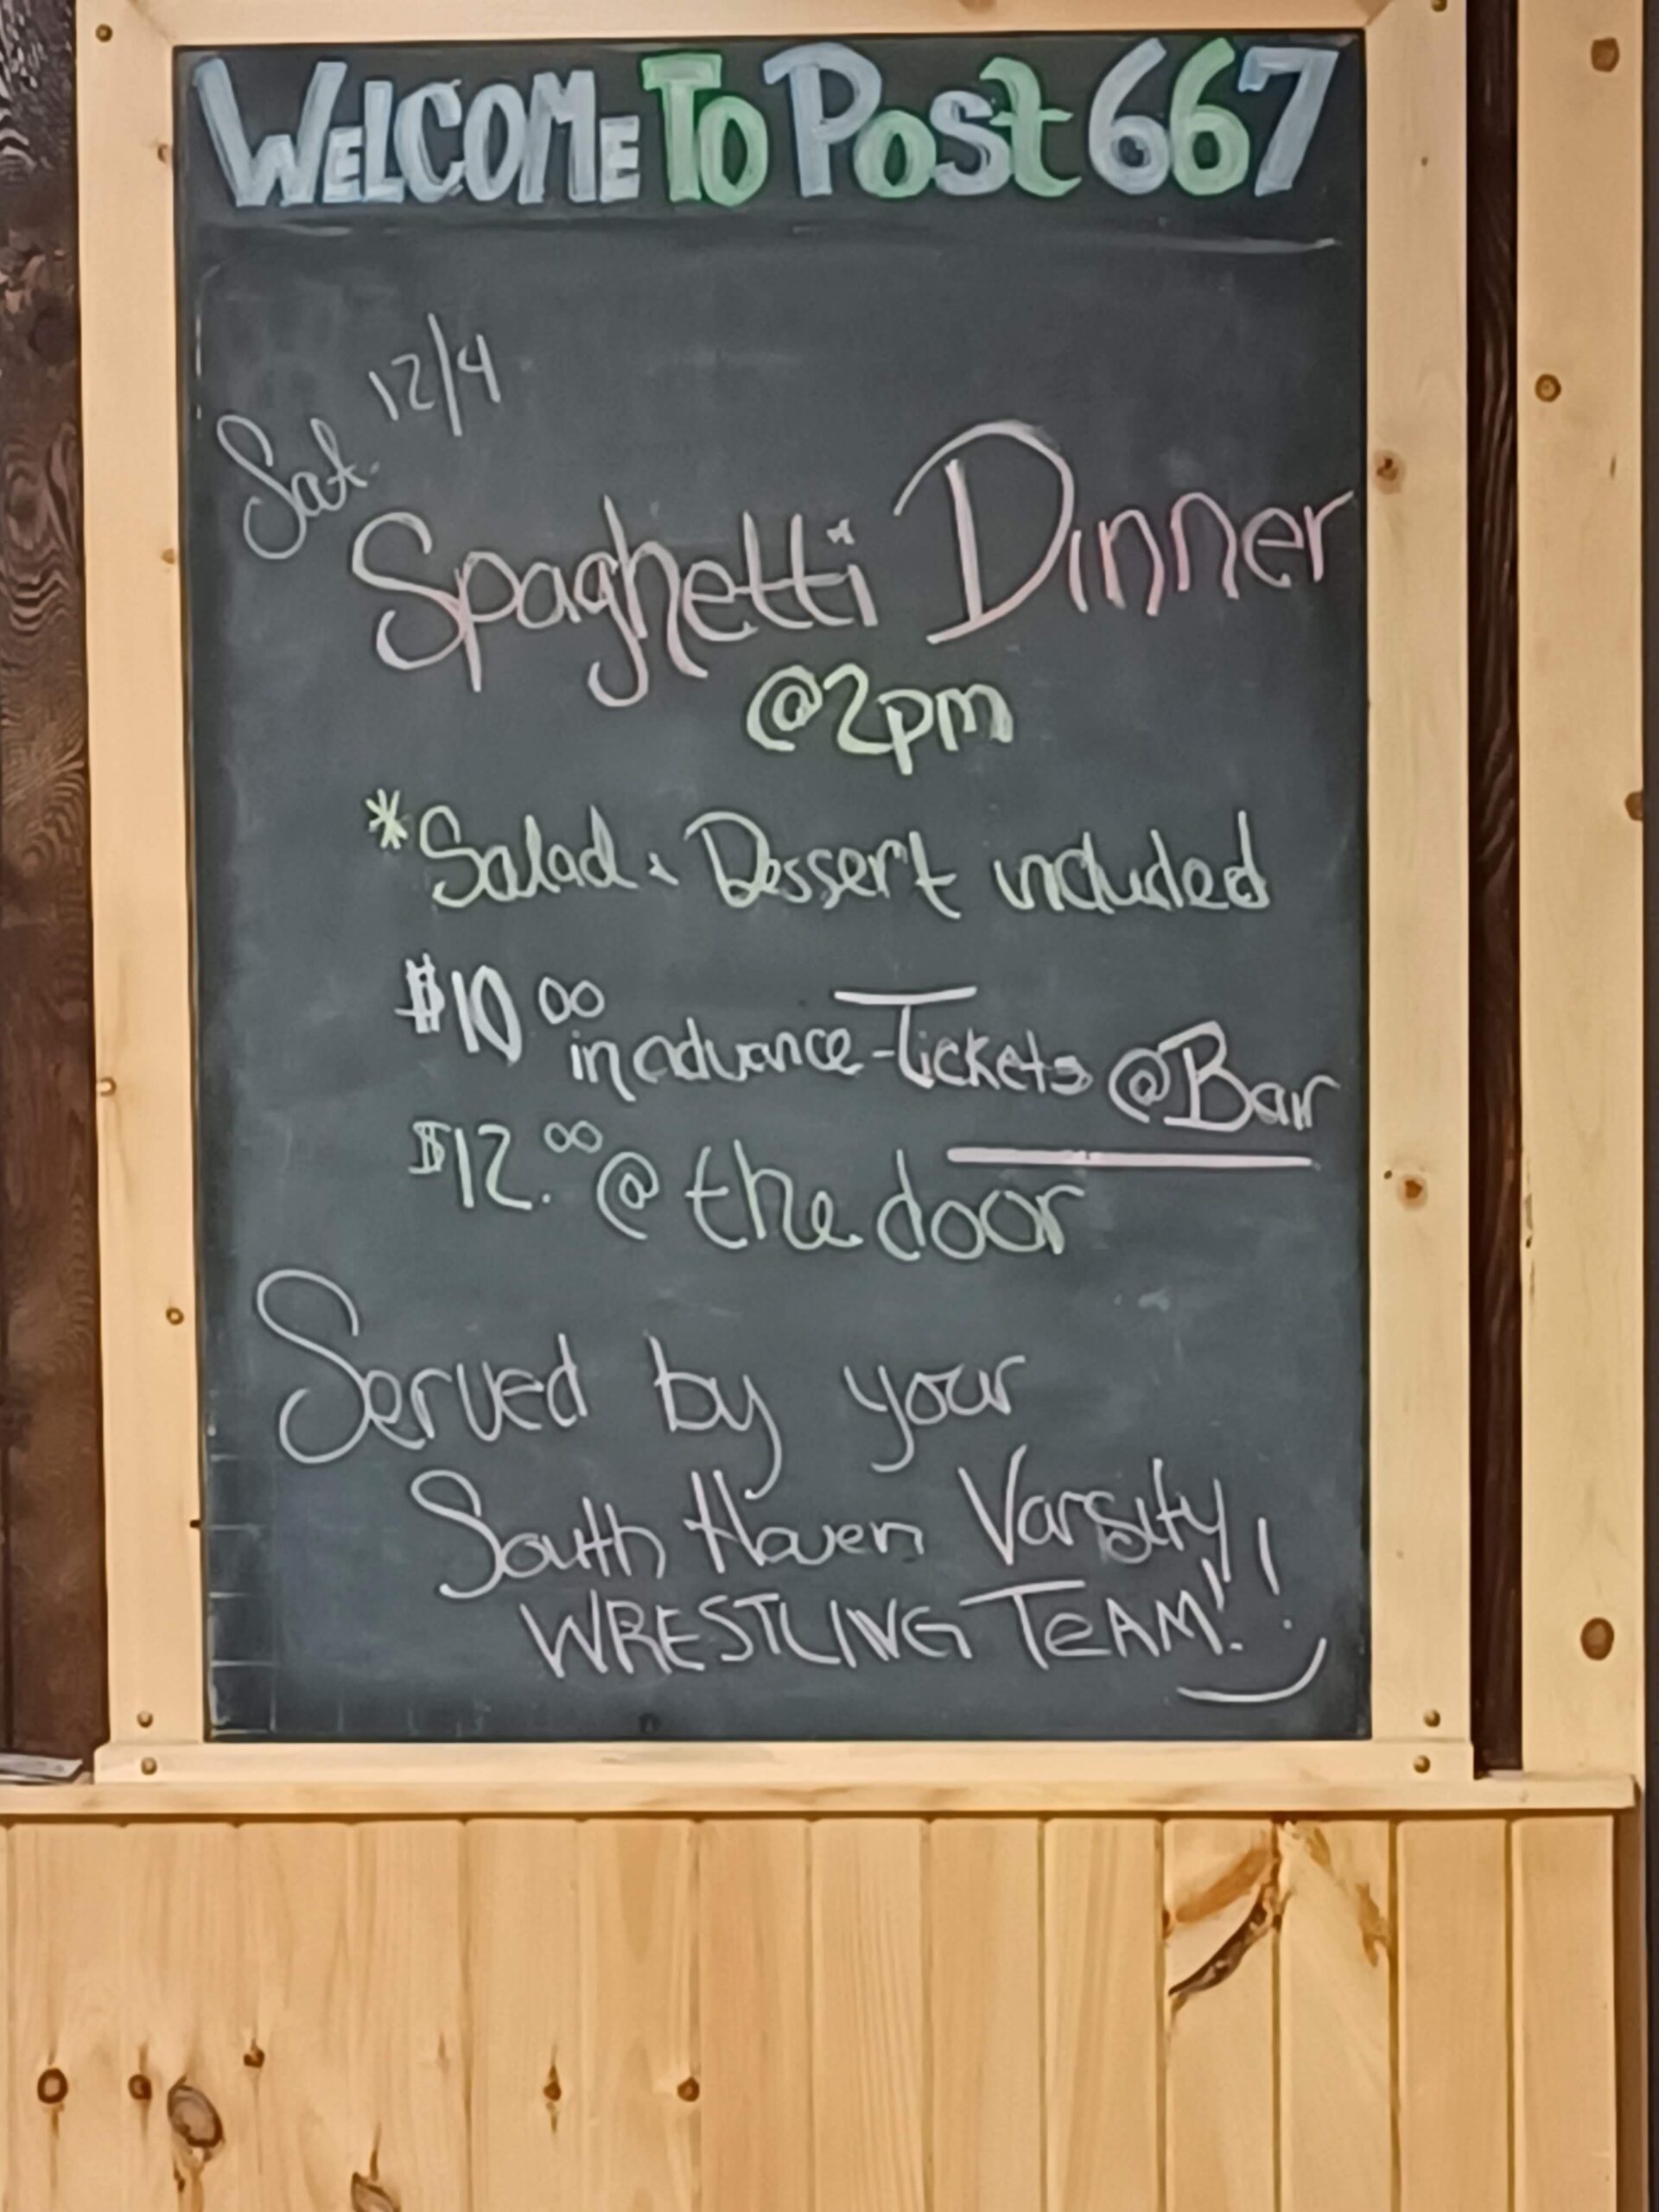 WELCOME TO POST 667
Sat. 12/4
Spaghetti Dinner
@2pm
*Salad & Dessert included
$10 00 in advance - Tickets @ Bar
$12.00 @ the door
Served by your
South Haven Varsity
WRESTLING TEAM!!